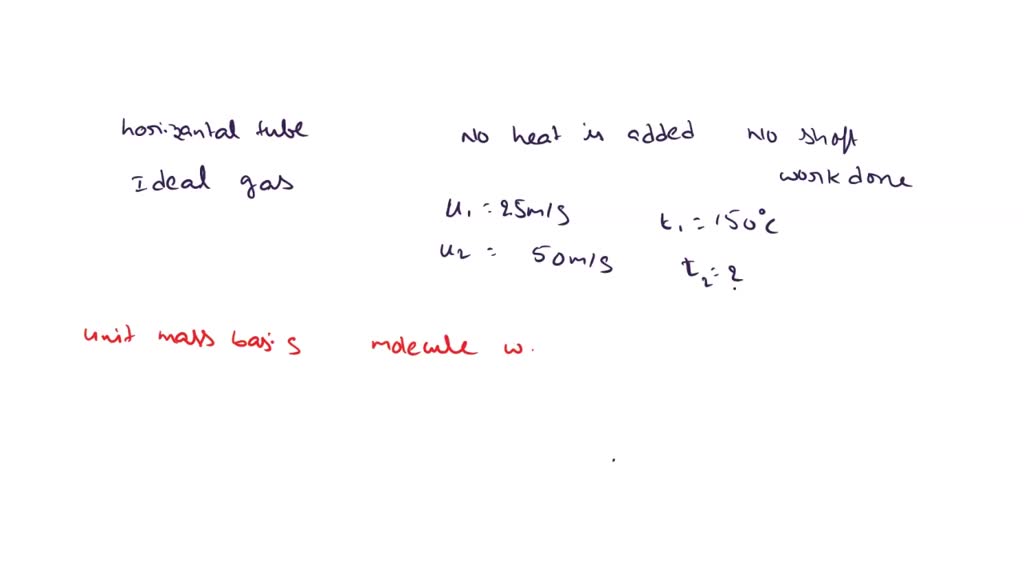 horizantal tube
Ideal gas
No heat is added
No shaft
work done
u₁ = 25m/s
u₂ = 50m/s
t₁ = 150°C
t₂ = ?
unit mass basis
molecule w.